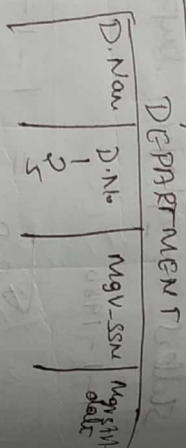 DEPARTMENT
D.Nam D.No Mgv_SSN Mgrstrt
1 date
2
5